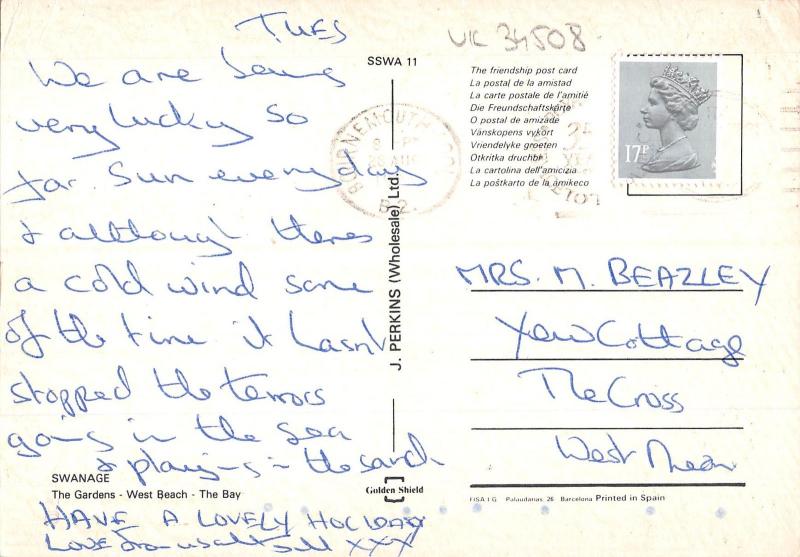 TUES
We are being
very lucky so
far. Sun everyday
& although theres
a cold wind some
of the time it hasnt
stopped the terrors
going in the sea
& playing in the sand
SWANAGE
The Gardens - West Beach - The Bay
HAVE A LOVELY HOLIDAY
LOVE from us all XXX
SSWA 11
J. PERKINS (Wholesale) Ltd.
Golden Shield
UK 34508
The friendship post card
La postal de la amistad
La carte postale de l'amitiè
Die Freundschaftskarte
O postal de amizade
Vänskopens vykort
Vriendelyke groeten
Otkritka druchbi
La cartolina dell'amicizia
La poŝtkarto de la amikeco
17P
BOURNEMOUTH
MRS. M. BEAZLEY
Yew Cottage
The Cross
West Meon
FISA I.G. Palaudarias, 26 Barcelona Printed in Spain